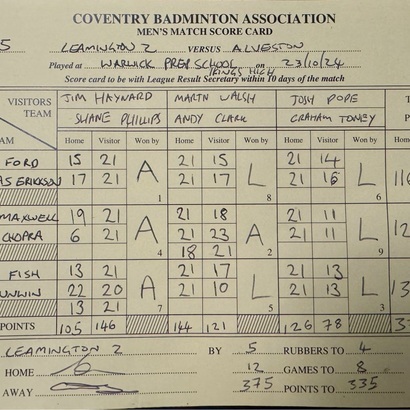 COVENTRY BADMINTON ASSOCIATION
MEN'S MATCH SCORE CARD
5 LEAMINGTON 2 VERSUS ALVESTON
Played at WARWICK PREP SCHOOL on 23/10/24
KINGS HIGH
Score card to be with League Result Secretary within 10 days of the match
VISITORS TEAM JIM HAYNARD MARTN WALSH JOSH POPE
SHANE PHILLIPS ANDY CLARK GRAHAM TONEY
Home Visitor Won by Home Visitor Won by Home Visitor Won by
FORD 15 21 A 21 15 L 21 14 L
AS ERICKSON 17 21 21 17 21 16 116
1 8 6
MAXWELL 19 21 A 21 18 A 21 11 L
CHOPRA 6 21 21 23 21 11
4 18 21 2 9
FISH 13 21 A 21 17 L 21 13 L
UNWIN 22 20 21 10 21 13
13 21 7 5 3
POINTS 105 146 144 121 126 78
LEAMINGTON 2 BY 5 RUBBERS TO 4
HOME 12 GAMES TO 8
AWAY 375 POINTS TO 335